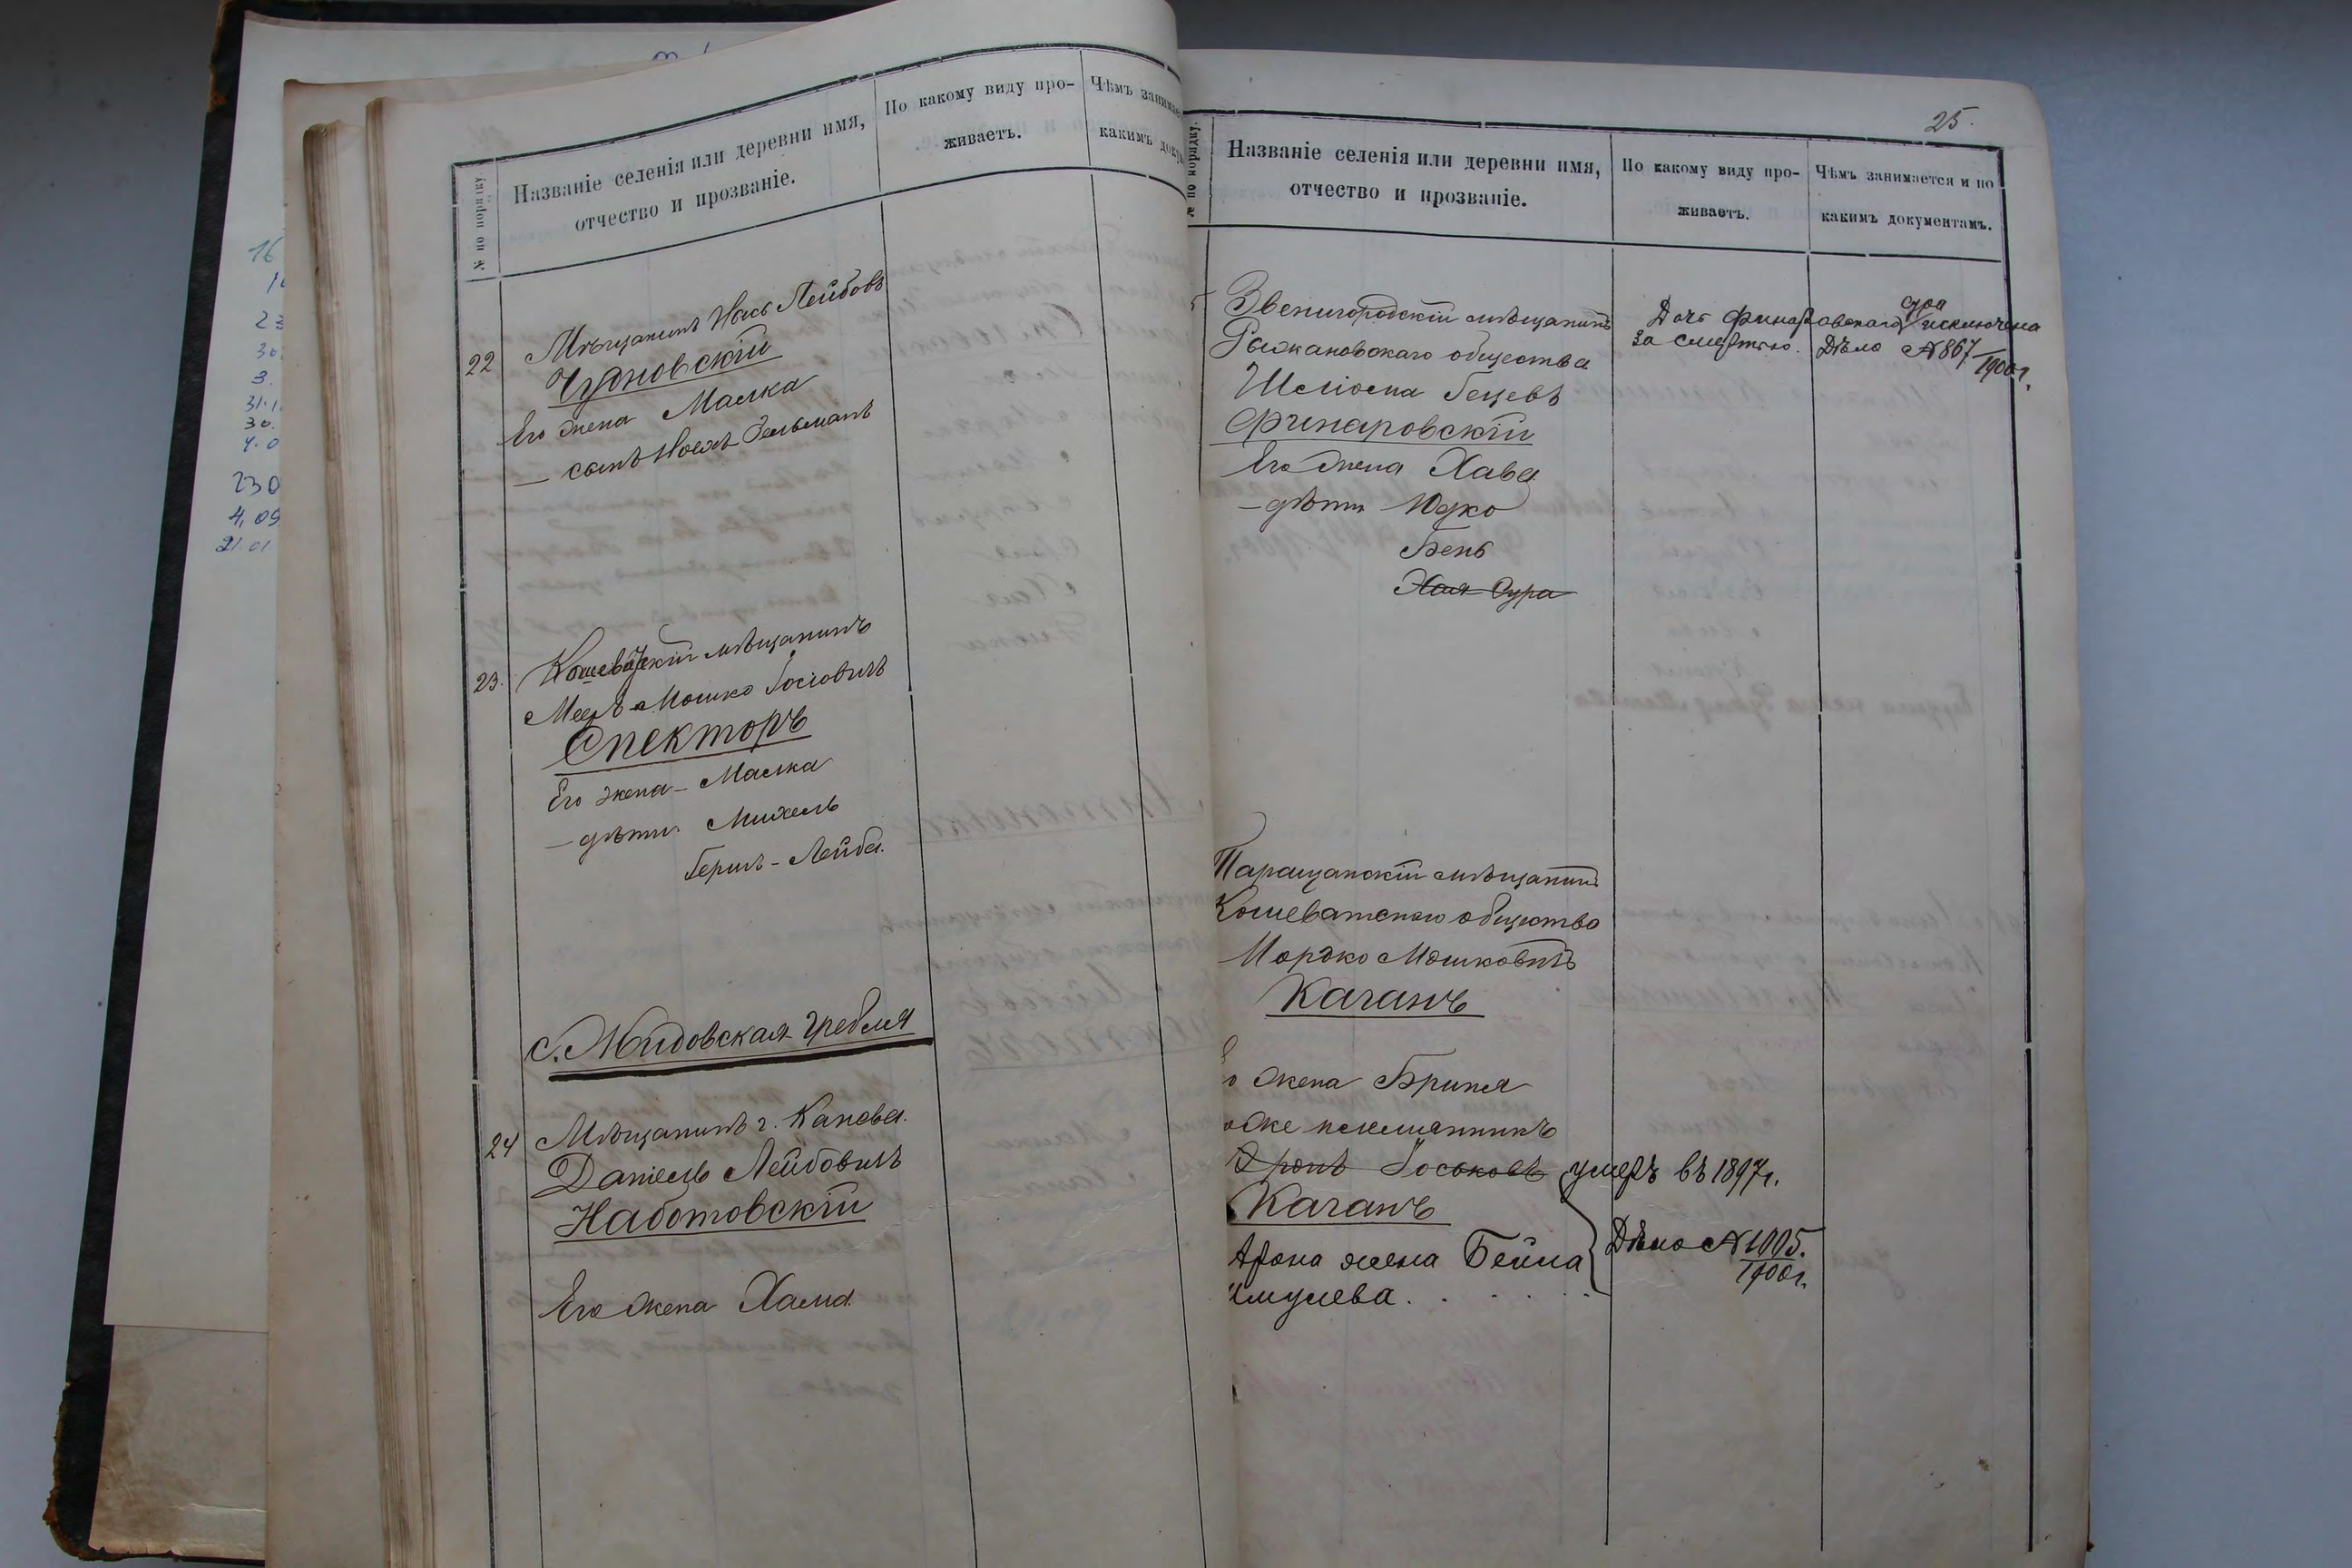 № по порядку
Названіе селенія или деревни имя,
отчество и прозваніе.
По какому виду про-
живаетъ.
Чѣмъ занимае
какимъ доку
22
Мѣщанинъ Нось Лейбовъ
Чудновскій
Его жена Малка
— сынъ Нохъ-Зельманъ
23.
Кошеватскій мѣщанинъ
Мееръ-Мошко Іосіовичъ
Спекторъ
Его жена – Малка
— дѣти. Михель
Гершъ-Лейба.
с. Жидовская-Гребля
24
Мѣщанинъ г. Канева.
Даніель Лейбовичъ
Наботовскій
Его жена Хама
16
23
30.
3.
31.1
30.
4.0
230
4,09
21.01
25.
№ по порядку.
Названіе селенія или деревни имя,
отчество и прозваніе.
По какому виду про-
живаетъ.
Чѣмъ занимается и по
какимъ документамъ.
Звенигородскій мѣщанинъ
Рыжановскаго общества
Шліома Гецевъ
Финаровскій
Его жена Хава
— дѣти Юдко
Бень
Хая-Сура
Дочь Финаровскаго Сура исключена
за смертью. Дѣло №867
1900 г.
Таращанскій мѣщанинъ
Кошеватскаго общества
Мордко Мошковичъ
Каганъ
о жена Бриня
оже племянникъ
Аронъ Іоськовъ умеръ въ 1897 г.
Каганъ
Арона жена Бейла
Шмулева . . . . .
Дѣло №1005.
1900 г.